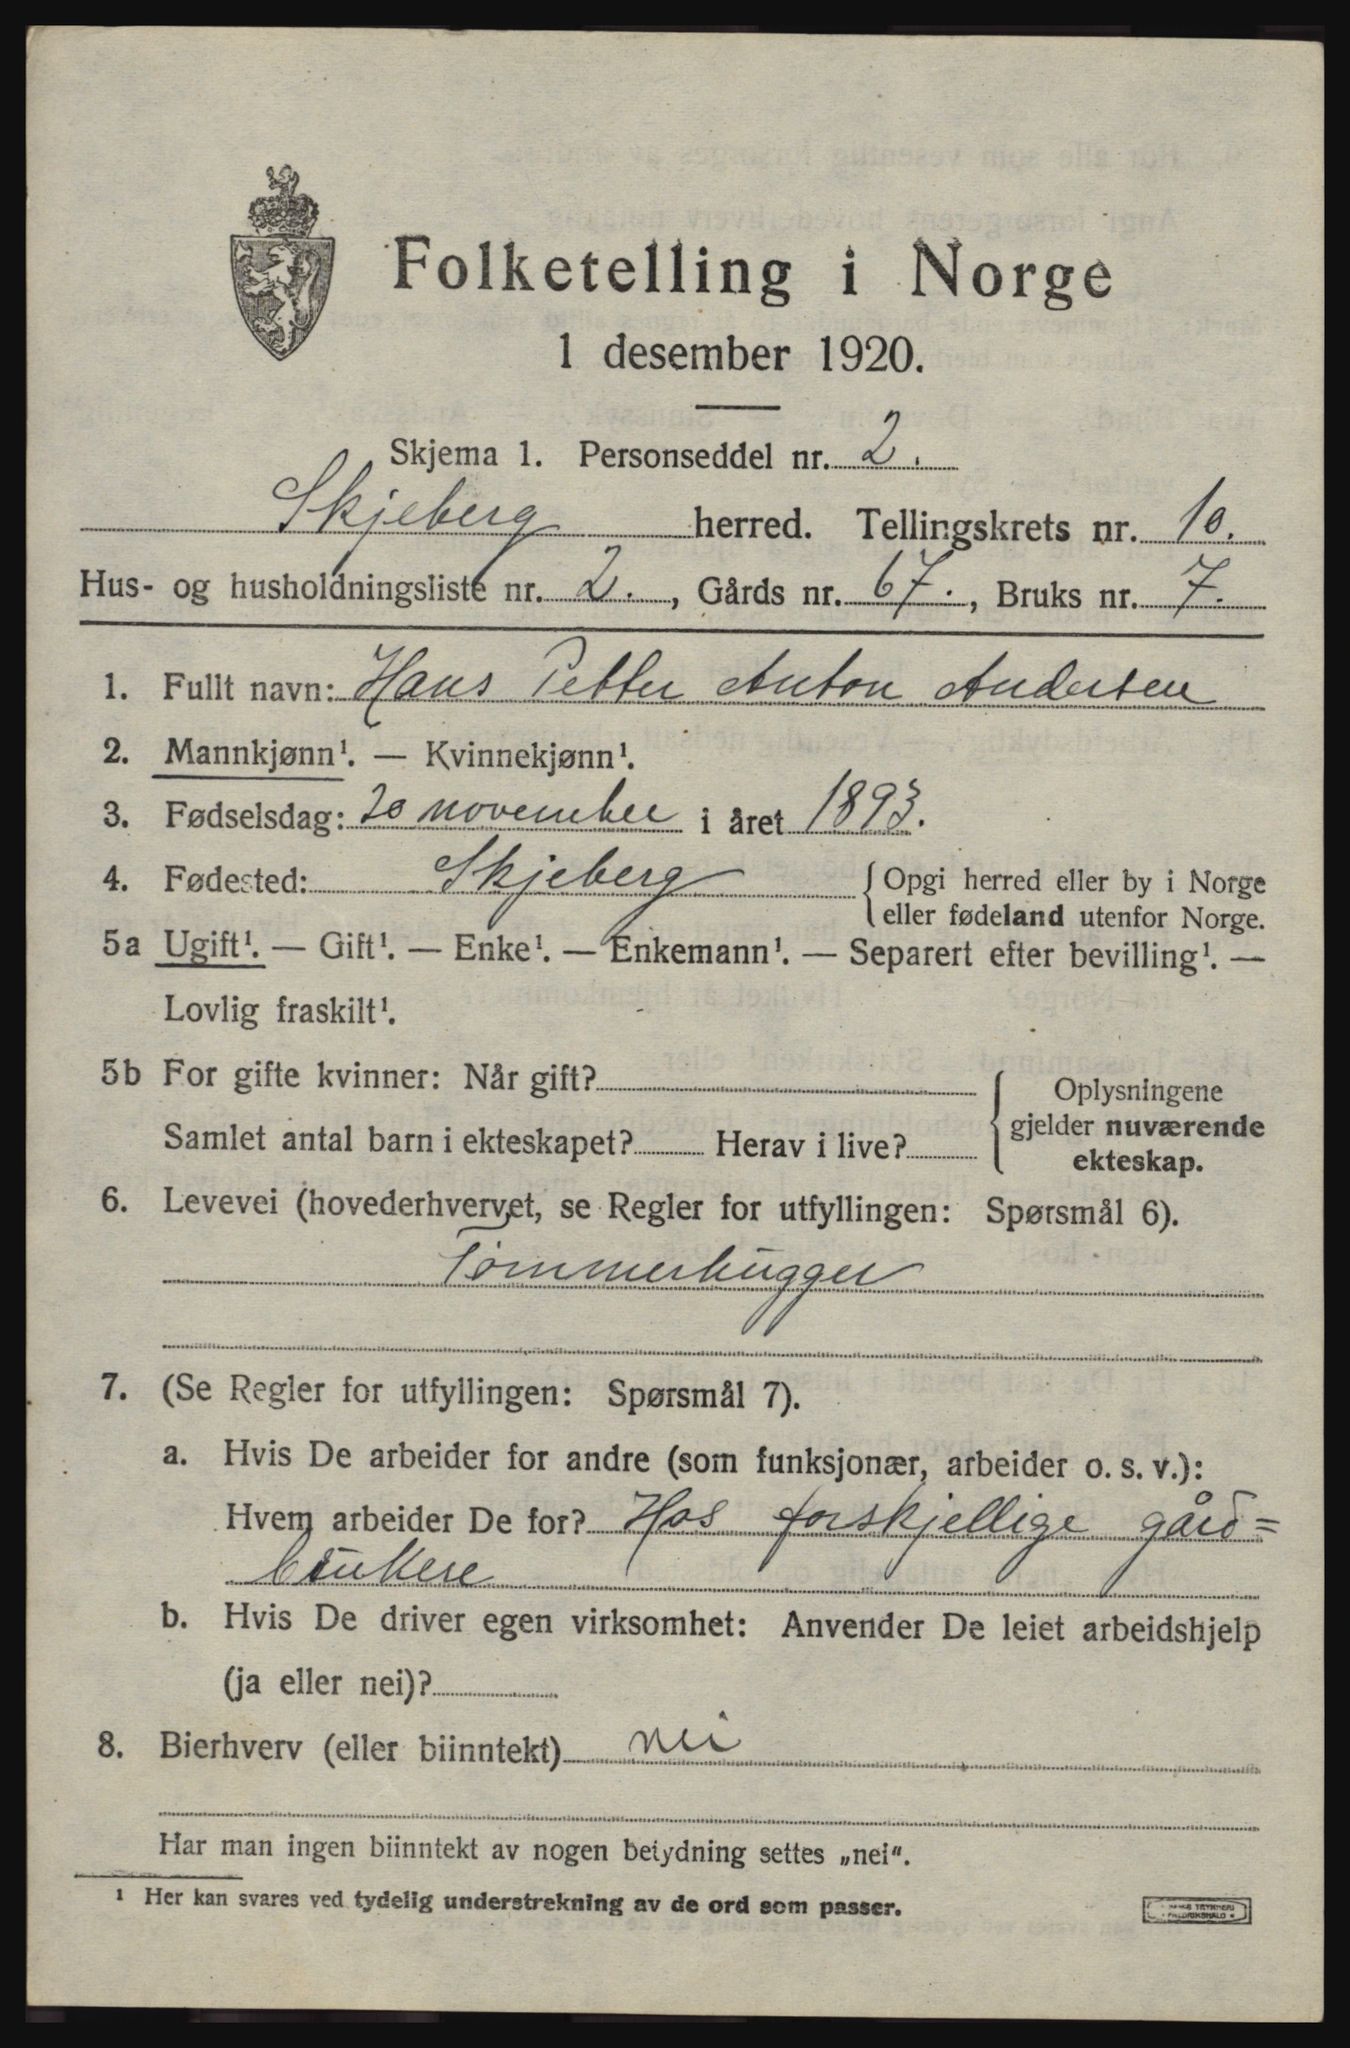 Folketelling i Norge
1 desember 1920.
Skjema 1. Personseddel nr. 2.
Skjeberg herred. Tellingskrets nr. 10.
Hus- og husholdningsliste nr. 2., Gårds nr. 67., Bruks nr. 7.
1. Fullt navn: Hans Petter Anton Andersen
2. Mannkjønn¹. — Kvinnekjønn¹.
3. Fødselsdag: 20 november i året 1893.
4. Fødested: Skjeberg { Opgi herred eller by i Norge
eller fødeland utenfor Norge.
5a Ugift¹. — Gift¹. — Enke¹. — Enkemann¹. — Separert efter bevilling¹. —
Lovlig fraskilt¹.
5b For gifte kvinner: Når gift?
Oplysningene
Samlet antal barn i ekteskapet? Herav i live?
gjelder nuværende
ekteskap.
6. Levevei (hovederhvervet, se Regler for utfyllingen: Spørsmål 6).
Tømmerhugger
7. (Se Regler for utfyllingen: Spørsmål 7).
a. Hvis De arbeider for andre (som funksjonær, arbeider o. s. v.):
Hvem arbeider De for? Hos forskjellige gård=
brukere
b. Hvis De driver egen virksomhet: Anvender De leiet arbeidshjelp
(ja eller nei)?
8. Bierhverv (eller biinntekt) nei
Har man ingen biinntekt av nogen betydning settes „nei".
¹ Her kan svares ved tydelig understrekning av de ord som passer.
TRYKKERI
FREDRIKSHALD